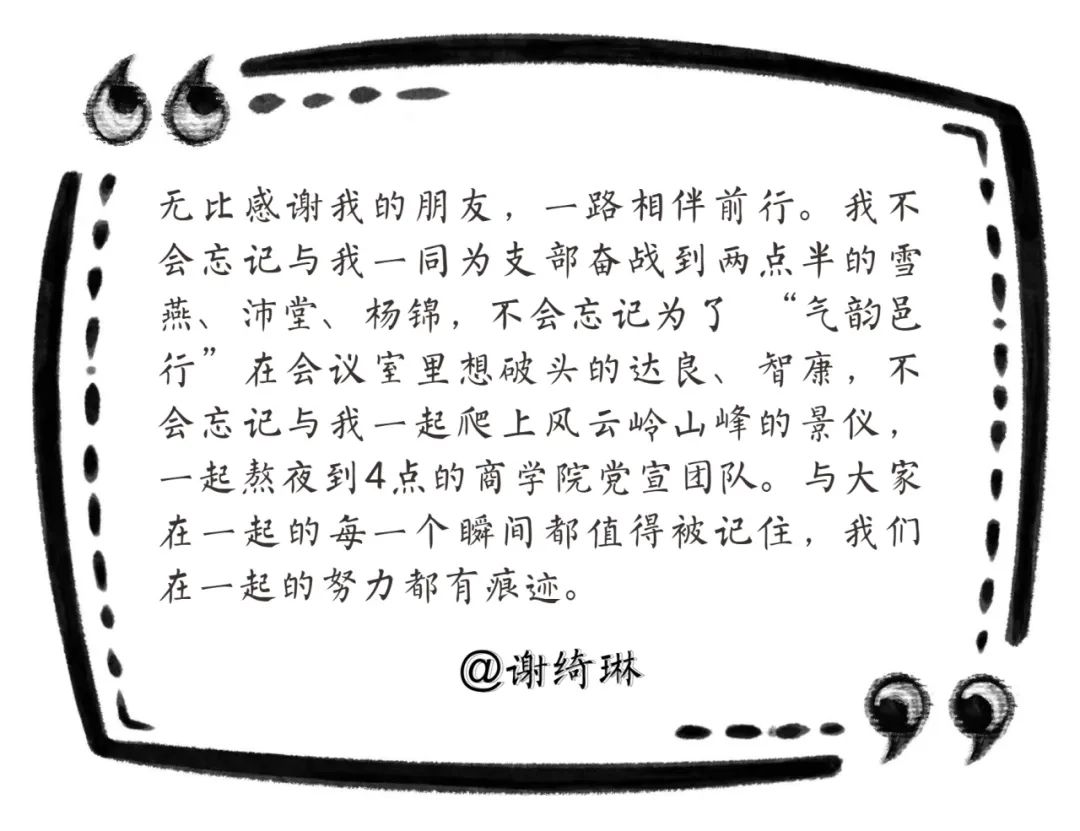 无比感谢我的朋友，一路相伴前行。我不
会忘记与我一同为支部奋战到两点半的雪
燕、沛堂、杨锦，不会忘记为了 “气韵邑
行”在会议室里想破头的达良、智康，不
会忘记与我一起爬上风云岭山峰的景仪，
一起熬夜到4点的商学院党宣团队。与大家
在一起的每一个瞬间都值得被记住，我们
在一起的努力都有痕迹。
@谢绮琳